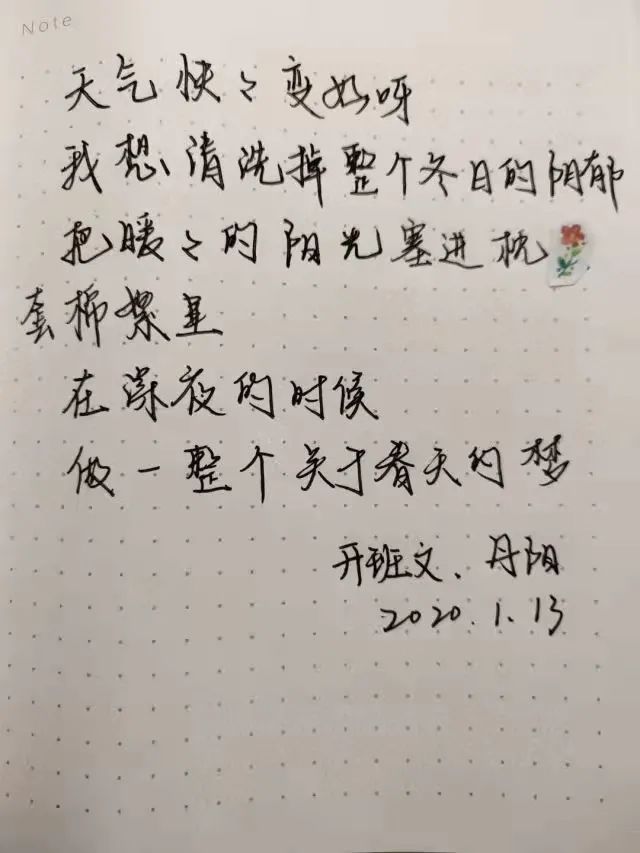 Note
天气快々变好呀
我想清洗掉整个冬日的阴郁
把暖々的阳光塞进枕
套棉絮里
在深夜的时候
做一整个关于春天的梦
开班文、丹阳
2020.1.13